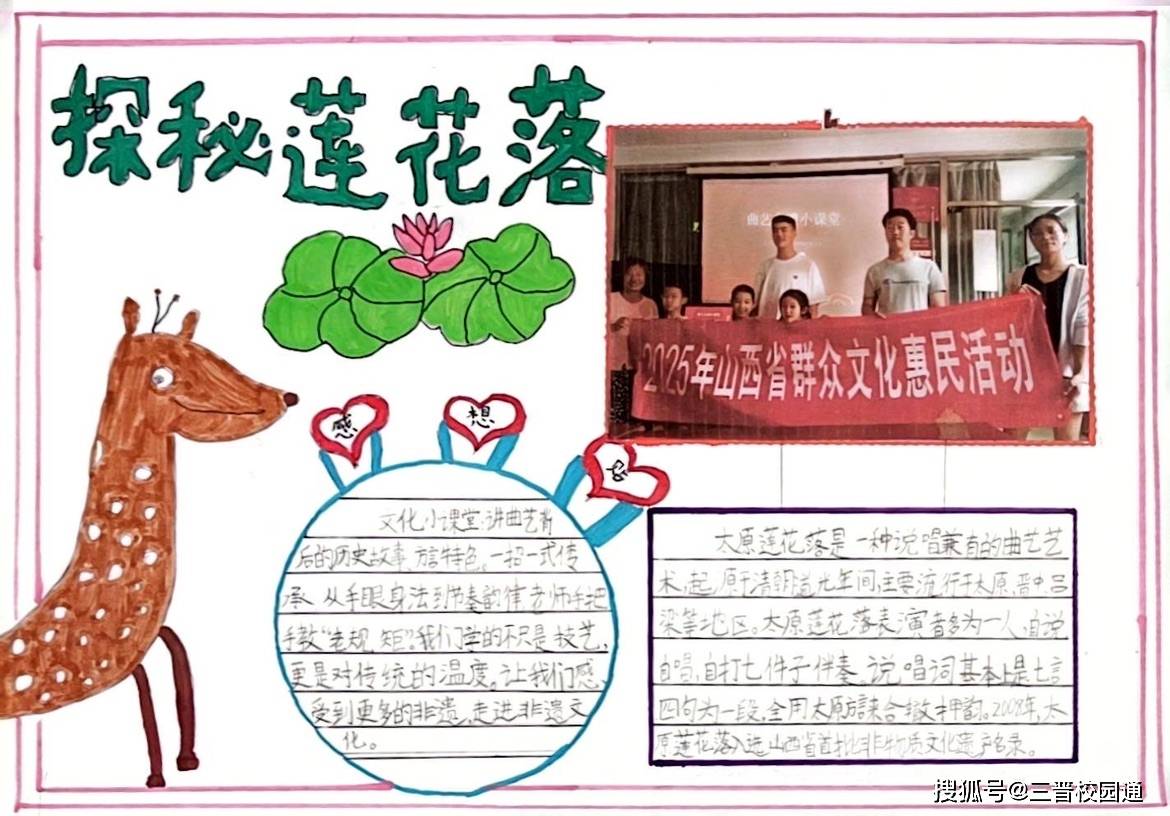 探秘莲花落
曲艺
小课堂
2025年山西省群众文化惠民活动
感
想
文化小课堂:讲曲艺背
后的历史故事、方言特色。一招一式传
承,从手眼身法到节奏韵律,老师手把
手教“老规矩”。我们学的不只是技艺,
更是对传统的温度。让我们感
受到更多的非遗,走进非遗文
化。
太原莲花落是一种说唱兼有的曲艺艺
术,起原于清朝道光年间,主要流行于太原、晋中、吕
梁等地区。太原莲花落表演者多为一人,自说
自唱,自打七件子伴奏。说唱词基本上是七言
四句为一段,全用太原方言来合辙押韵。2008年,太
原莲花落入选山西省首批非物质文化遗产名录。
搜狐号@三晋校园通